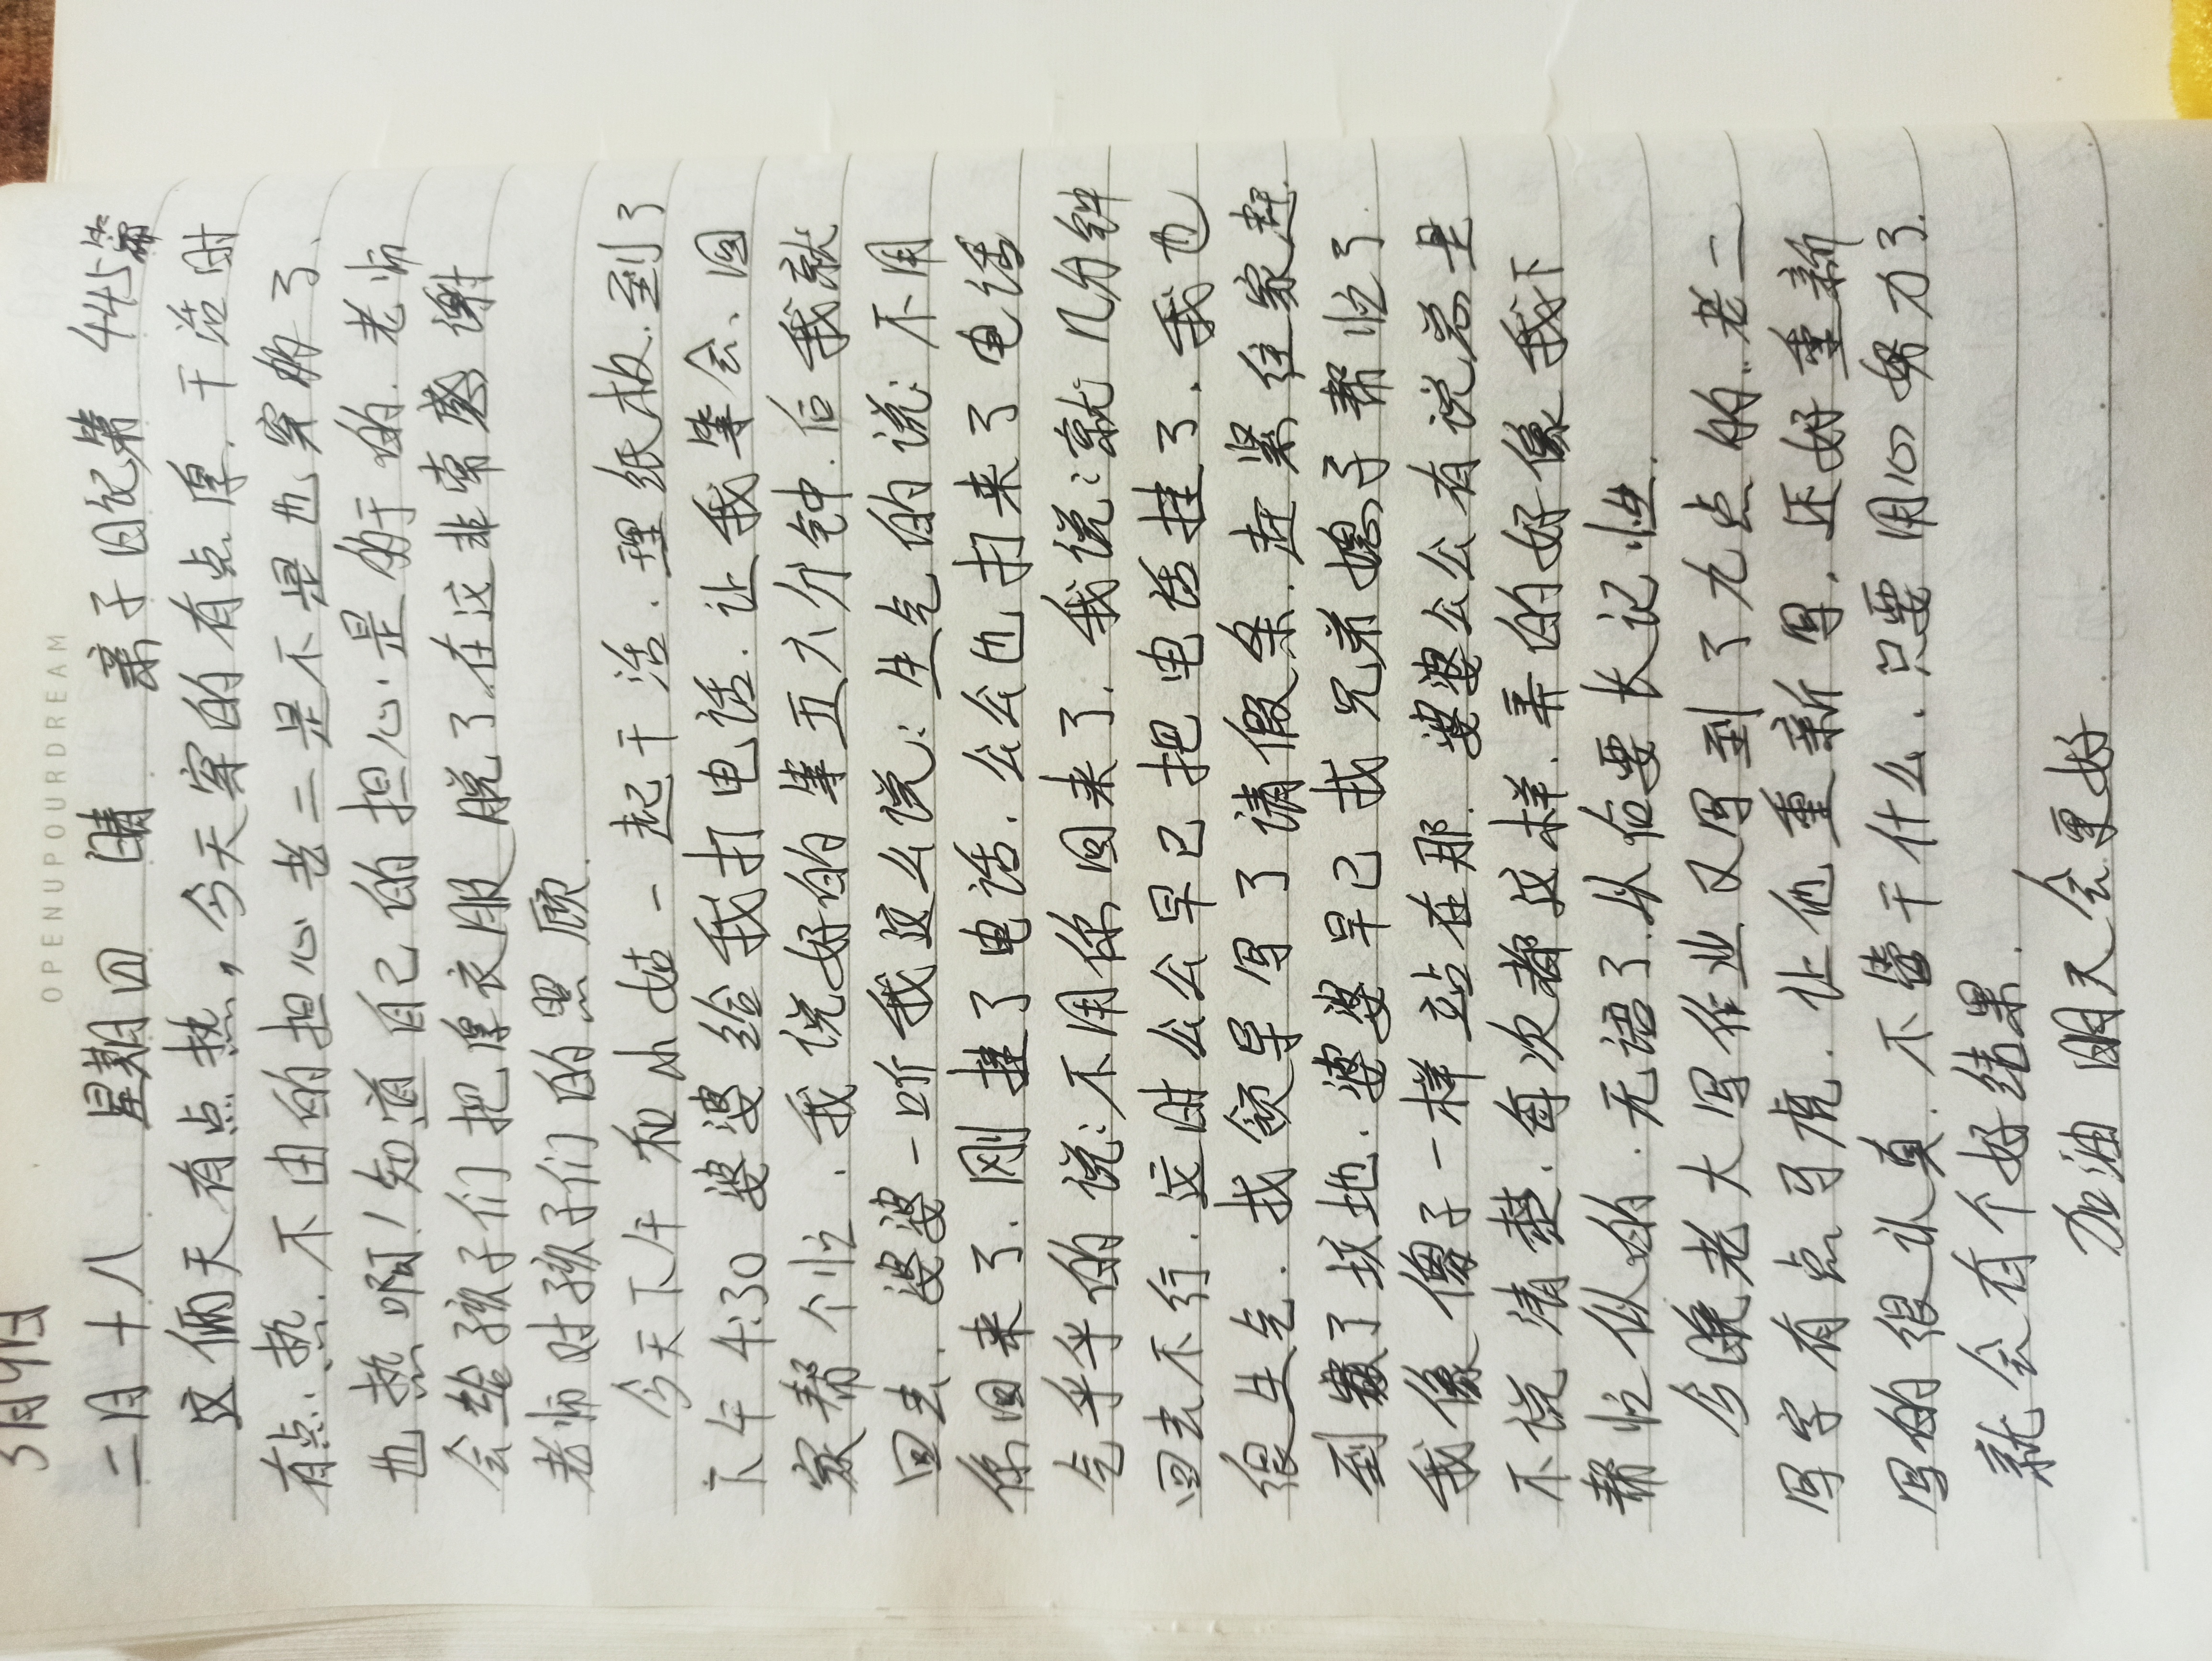 OPENUPOURDREAM
3月9日
二月十八 星期四 晴 亲子日记第445篇
这俩天有点热,今天穿的有点厚.干活时
有点热.不由的担心老二是不是也穿的了.
也热啊!知道自己的担心是的于的.老师
会给孩子们把厚衣服脱了.在这非常感谢
老师对孩子们的照顾.
今天下午和小姑一起干活.理纸板.到了
下午4:30婆婆给我打电话.让我等会.回
家帮个忙.我说好的等五六分钟.后我就
回去.婆婆一听我这么说:生气的说:不用
你回来了.刚挂了电话.公公也打来了电话
气乎乎的说:不用你回来了.我说:就几分钟
回去不行.这时公公早已把电话挂了.我也
很生气.找领导写了请假条.赶紧往家赶.
到了坟地.婆婆早已找兄弟媳子帮忙了.
我像傻子一样站在那.婆婆公公有说总是
不说清楚.每次都这样.弄的好像我下
帮忙似的.无语了.从后要长记性.
今晚老大写作业又写到了九点的..老二
写字有点马虎.让他重新写.还好重新
写的很认真.不管干什么.只要用心努力了.
就会有个好结果.
加油 明天会更好